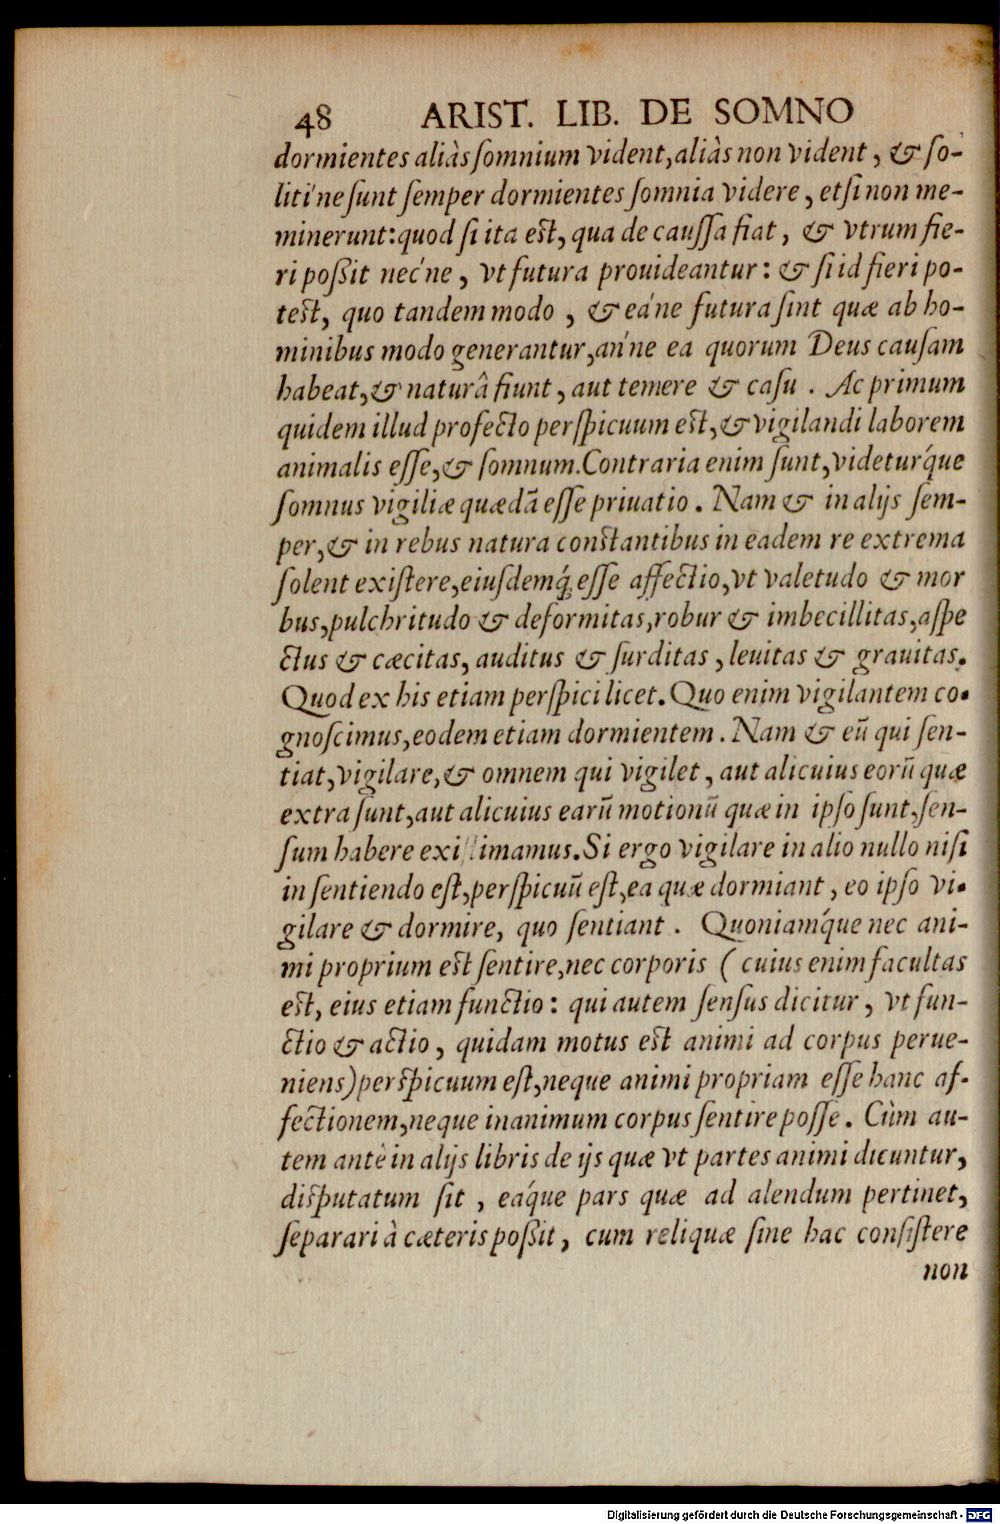 48 ARIST. LIB. DE SOMNO
dormientes aliàs ſomnium vident, aliàs non vident, & ſo-
liti'ne ſunt ſemper dormientes ſomnia videre, etſi non me-
minerunt: quod ſi ita eſt, qua de cauſſa fiat, & vtrum fie-
ri poßit nec'ne, vt futura prouideantur: & ſi id fieri po-
teſt, quo tandem modo, & eáne futura ſint quæ ab ho-
minibus modo generantur, an'ne ea quorum Deus cauſam
habeat, & naturâ fiunt, aut temere & caſu. Ac primum
quidem illud profecto perſpicuum eſt, & vigilandi laborem
animalis eſſe, & ſomnum. Contraria enim ſunt, videturq́ue
ſomnus vigiliæ quædã eſſe priuatio. Nam & in alijs ſem-
per, & in rebus natura conſtantibus in eadem re extrema
ſolent exiſtere, eiuſdemq́; eſſe affectio, vt valetudo & mor
bus, pulchritudo & deformitas, robur & imbecillitas, aſpe
ctus & cæcitas, auditus & ſurditas, leuitas & grauitas.
Quod ex his etiam perſpici licet. Quo enim vigilantem co-
gnoſcimus, eodem etiam dormientem. Nam & eũ qui ſen-
tiat, vigilare, & omnem qui vigilet, aut alicuius eorũ quæ
extra ſunt, aut alicuius earũ motionũ quæ in ipſo ſunt, ſen-
ſum habere exiſtimamus. Si ergo vigilare in alio nullo niſi
in ſentiendo eſt, perſpicuũ eſt, ea quæ dormiant, eo ipſo vi-
gilare & dormire, quo ſentiant. Quoniamq́ue nec ani-
mi proprium eſt ſentire, nec corporis (cuius enim facultas
eſt, eius etiam functio: qui autem ſenſus dicitur, vt fun-
ctio & actio, quidam motus eſt animi ad corpus perue-
niens) perſpicuum eſt, neque animi propriam eſſe hanc af-
fectionem, neque inanimum corpus ſentire poſſe. Cùm au-
tem antè in alijs libris de ijs quæ vt partes animi dicuntur,
diſputatum ſit, eaq́ue pars quæ ad alendum pertinet,
ſeparari à cæteris poßit, cum reliquæ ſine hac conſiſtere
non
Digitalisierung gefördert durch die Deutsche Forschungsgemeinschaft - DFG